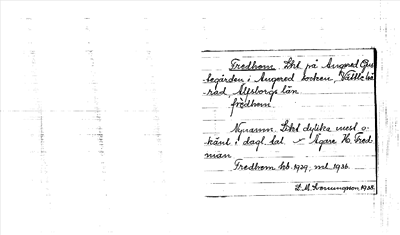 Fredhem. Lht på Angered Gus
tegården i Angered socken, Vättle hä
rad, Älfsborgs län
fredhem.
Nynamn. Lht dylika mest o-
känt i dagl. tal – Ägare H. Fred
man
Fredhem hb. 1929, ml. 1936.
1938.